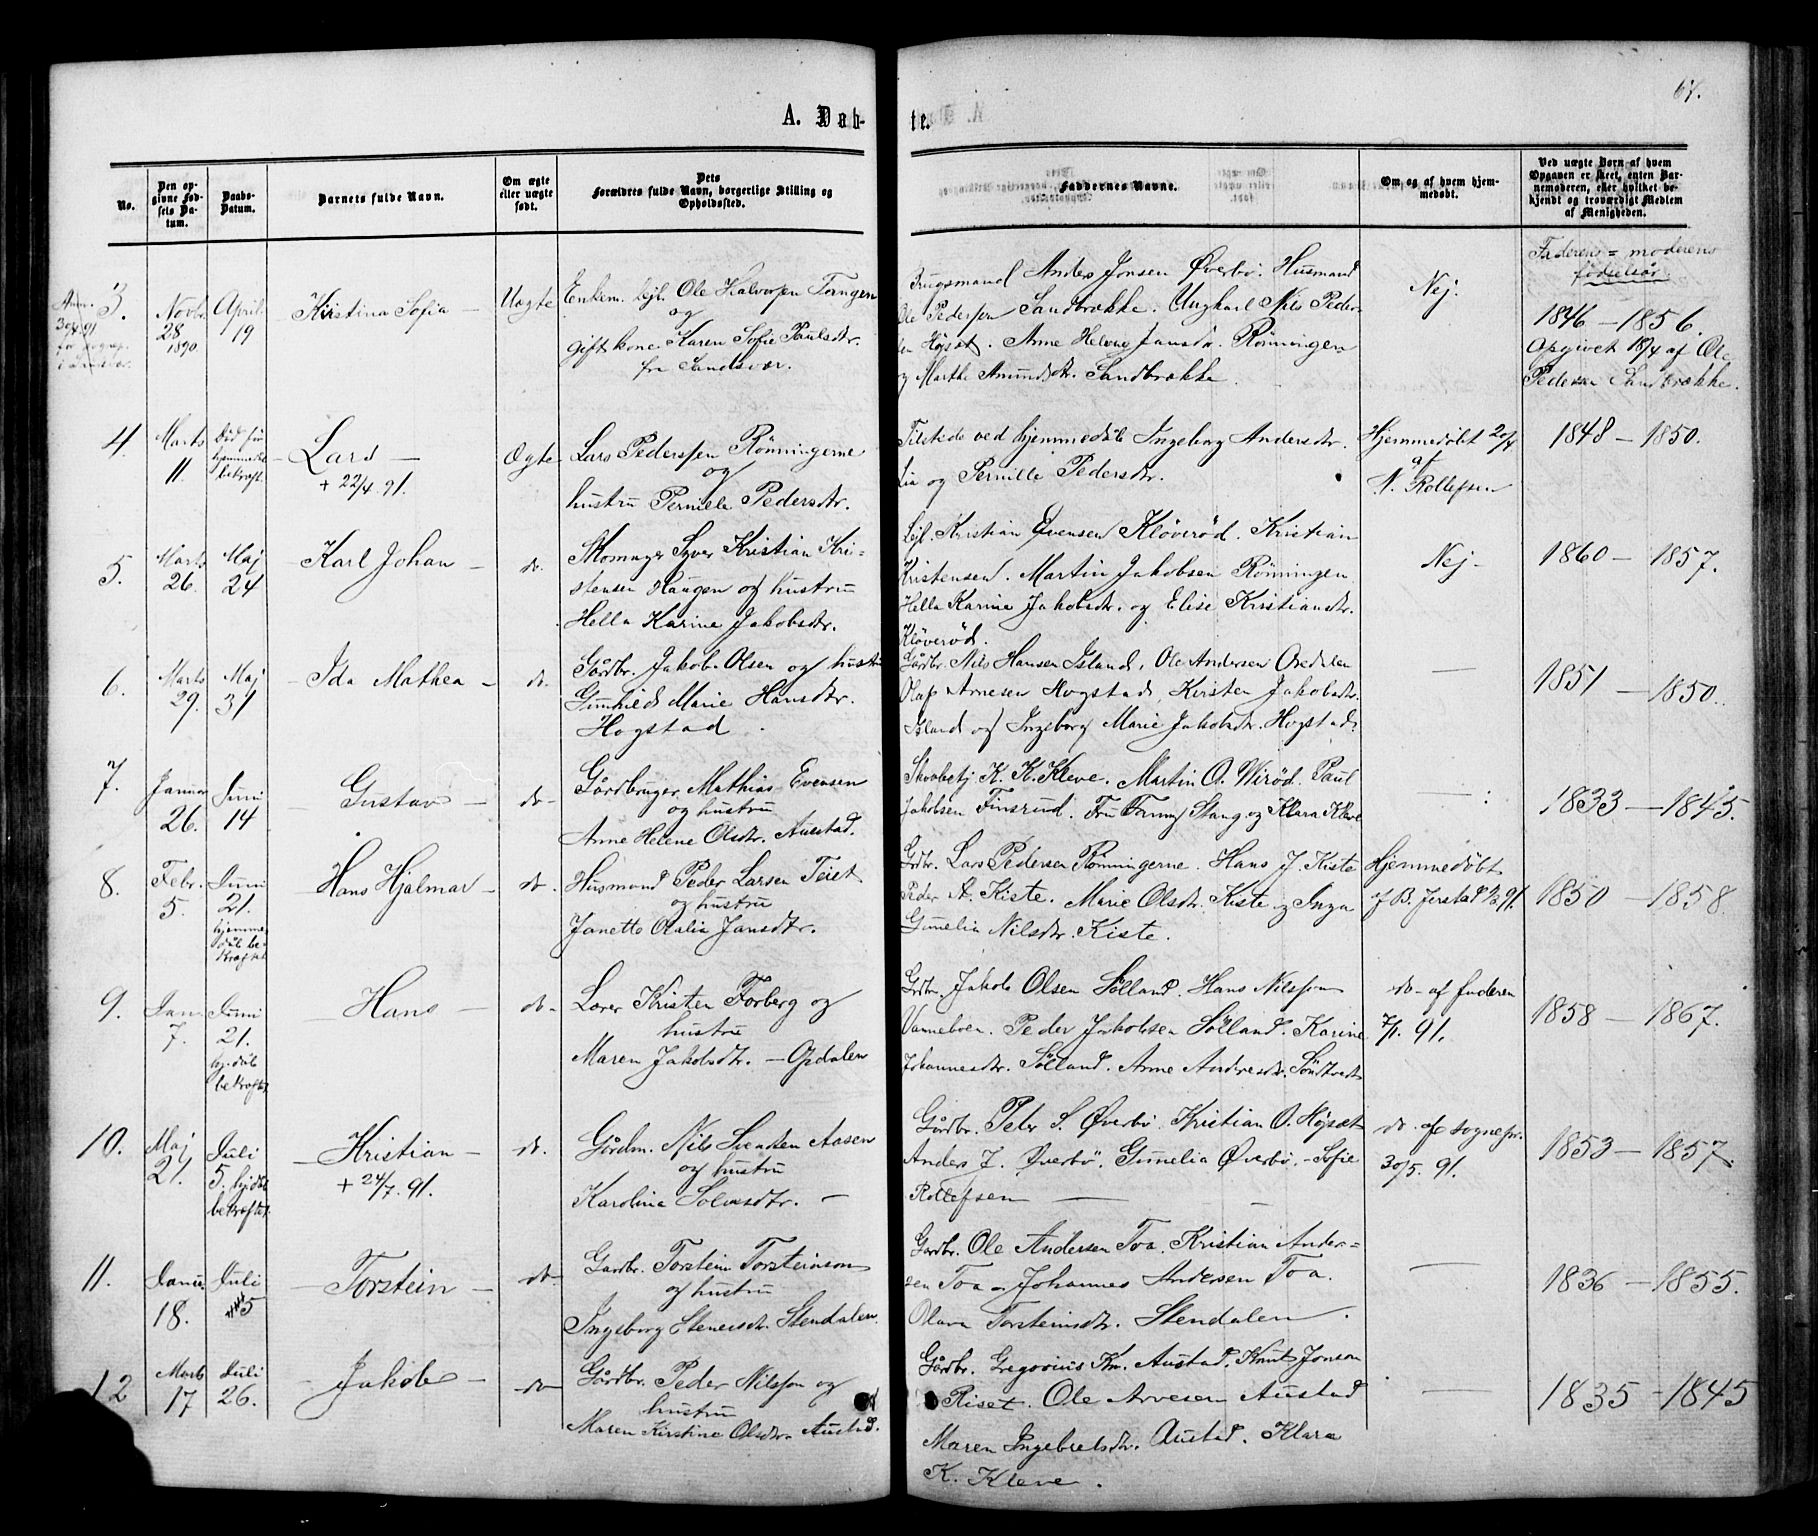 67.
A. Døb-
te.
No.
Den op-
givne Fød-
sels Da-
tum.
Daabs-
Datum.
Barnets fulde Navn.
Om ægte
eller uægte
født.
Dets
Forældres fulde Navn, borgerlige Stilling og
Opholdssted.
Faddernes Navne.
Om og af hvem hjem-
medøbt.
Ved uægte Børn af hvem
Opgaven er skeet, enten Bar-
nemoderen, eller hvilket be-
kjendt og troværdigt Medlem
af Menigheden.
Faderens = moderens
fødselsår
3.
Novbr
28
1890
April
19
Kirstina Sofia
Uægte
Enkem. Lejl. Ole Halvorsen
og
Gift kone Karen Sofie Paulsdtr.
fra Sandsvær.
Brugsmand Anders Jonsen Øverbø. Husmand
Ole Pedersen Sandbrække. Ungkarl Nils Peder-
sen Højset. Anne Helene Jansdtr. Rönningen
og Marthe Amundsdtr. Sandbrække.
Nej.
1846 – 1856.
Opgivet 18/4 af Ole
Pedersen Sandbrække.
4.
Marts
11.
bekræft.
Lars
+ 22/4. 91.
Ægte
Lars Pederssen Rönningerne
og
hustru Pernille Pedersdtr.
Tilstede ved hjemmedåb Ingeborg Andersdtr.
Lia og Pernille Pedersdtr.
Hjemmedøbt 20/4
af
N. Rollefsen
1848 – 1850.
5.
Marts
26.
Maj
24
Karl Johan
do.
Skomager Syver Kristian Kri-
stensen Haugen og hustru
Hella Karine Jakobsdtr.
Lejl. Kristian Evensen Kløverød. Kristian
Kristensen. Martin Jakobsen Rönningen
Hella Karine Jakobsdtr. og Elise Kristiansdtr.
Kløverød.
Nej
1860 – 1857.
6.
Marts
29.
Maj
31
Ida Mathea
do.
Gårdbr. Jakob Olsen og hustru
Gunhild Marie Hansdtr.
Hogstad.
Gårdbr. Nils Hansen Island, Ole Andersen Oredalen
Olaf Arnesen Hogstad, Kirsten Jakobsdtr.
Island og Ingeborg Marie Jakobsdtr. Hogstad.
1851 – 1850.
7.
Januar
26.
Juni
14
Gustav
do
Gårdbruger Mathias Evensen
og hustru
Anne Helene Olsdtr. Austad.
K. K. Kleve. Martin O. Wirød. Paul
Jakobsen Finsrud. Fru Fanny Stang og Klara Kleve
1833 – 1845.
8.
Febr.
5.
Juni
21.
hjemme-
dåb be-
kræftet
Hans Hjalmar
do.
Husmand Peder Larsen Teiet
og hustru
Janette Oralia Jansdtr.
Grdbr. Lars Pedersen Rönningerne. Hans J. Kiste
Peder A. Kiste. Marie Olsdtr. Kiste og Inga
Gunelia Nilsdtr. Kiste.
Hjemmedøbt
af B. Jerstad 91.
1850 – 1858.
9.
Jan
7.
Juni
21.
hj.dåb
bekræftet
Hans
do
Lærer Kristen Forberg og
hustru
Maren Jakobsdtr. – Opdalen
Grdbr. Jakob Olsen Sölland. Hans Nilssen
Vanneboen. Peder Jakobsen Sölland. Karine
Johannesdtr. Sölland. Anne Andresdtr. Söndtvedt
do – af faderen
7/1. 91.
1858 – 1867.
10.
Maj
21.
Juli
5. hjdåb
bekræftet.
Kristian
+ 24/7. 91.
do.
Gårdm. Nils Svensen Aasen
og hustru
Karoline Solvesdtr. –
Gårdbr. Peter S. Øverbø. Kristian O. Højset
Anders J. Øverbø. Gunelia Øverbø. – Sofie
Rollefsen
do. af sognepr.
30/5. 91.
1853 – 1857.
11.
Janu.
18.
Juli
5
Torstein
do
Gårdbr. Torstein Torsteinson
og hustru
Ingeborg Stenersdtr. Stendalen.
Gardbr. Ole Andersen Toa. Kristian Ander=
sen Toa. Johannes Andersen Toa.
Olava Torsteinsdtr. Stendalen.
1836 – 1855.
12
Marts
17
Juli
26.
Jakob
do
Gårdbr. Peder Nilsson og
hustru
Maren Kirstine Olsdtr. Austad.
Gårdbr. Gregorius Kn. Austad, Knut Jonson
Riset. Ole Arvesen Austad
Maren Ingebretsdtr. Austad. Klara
K. Kleve.
1835 – 1845